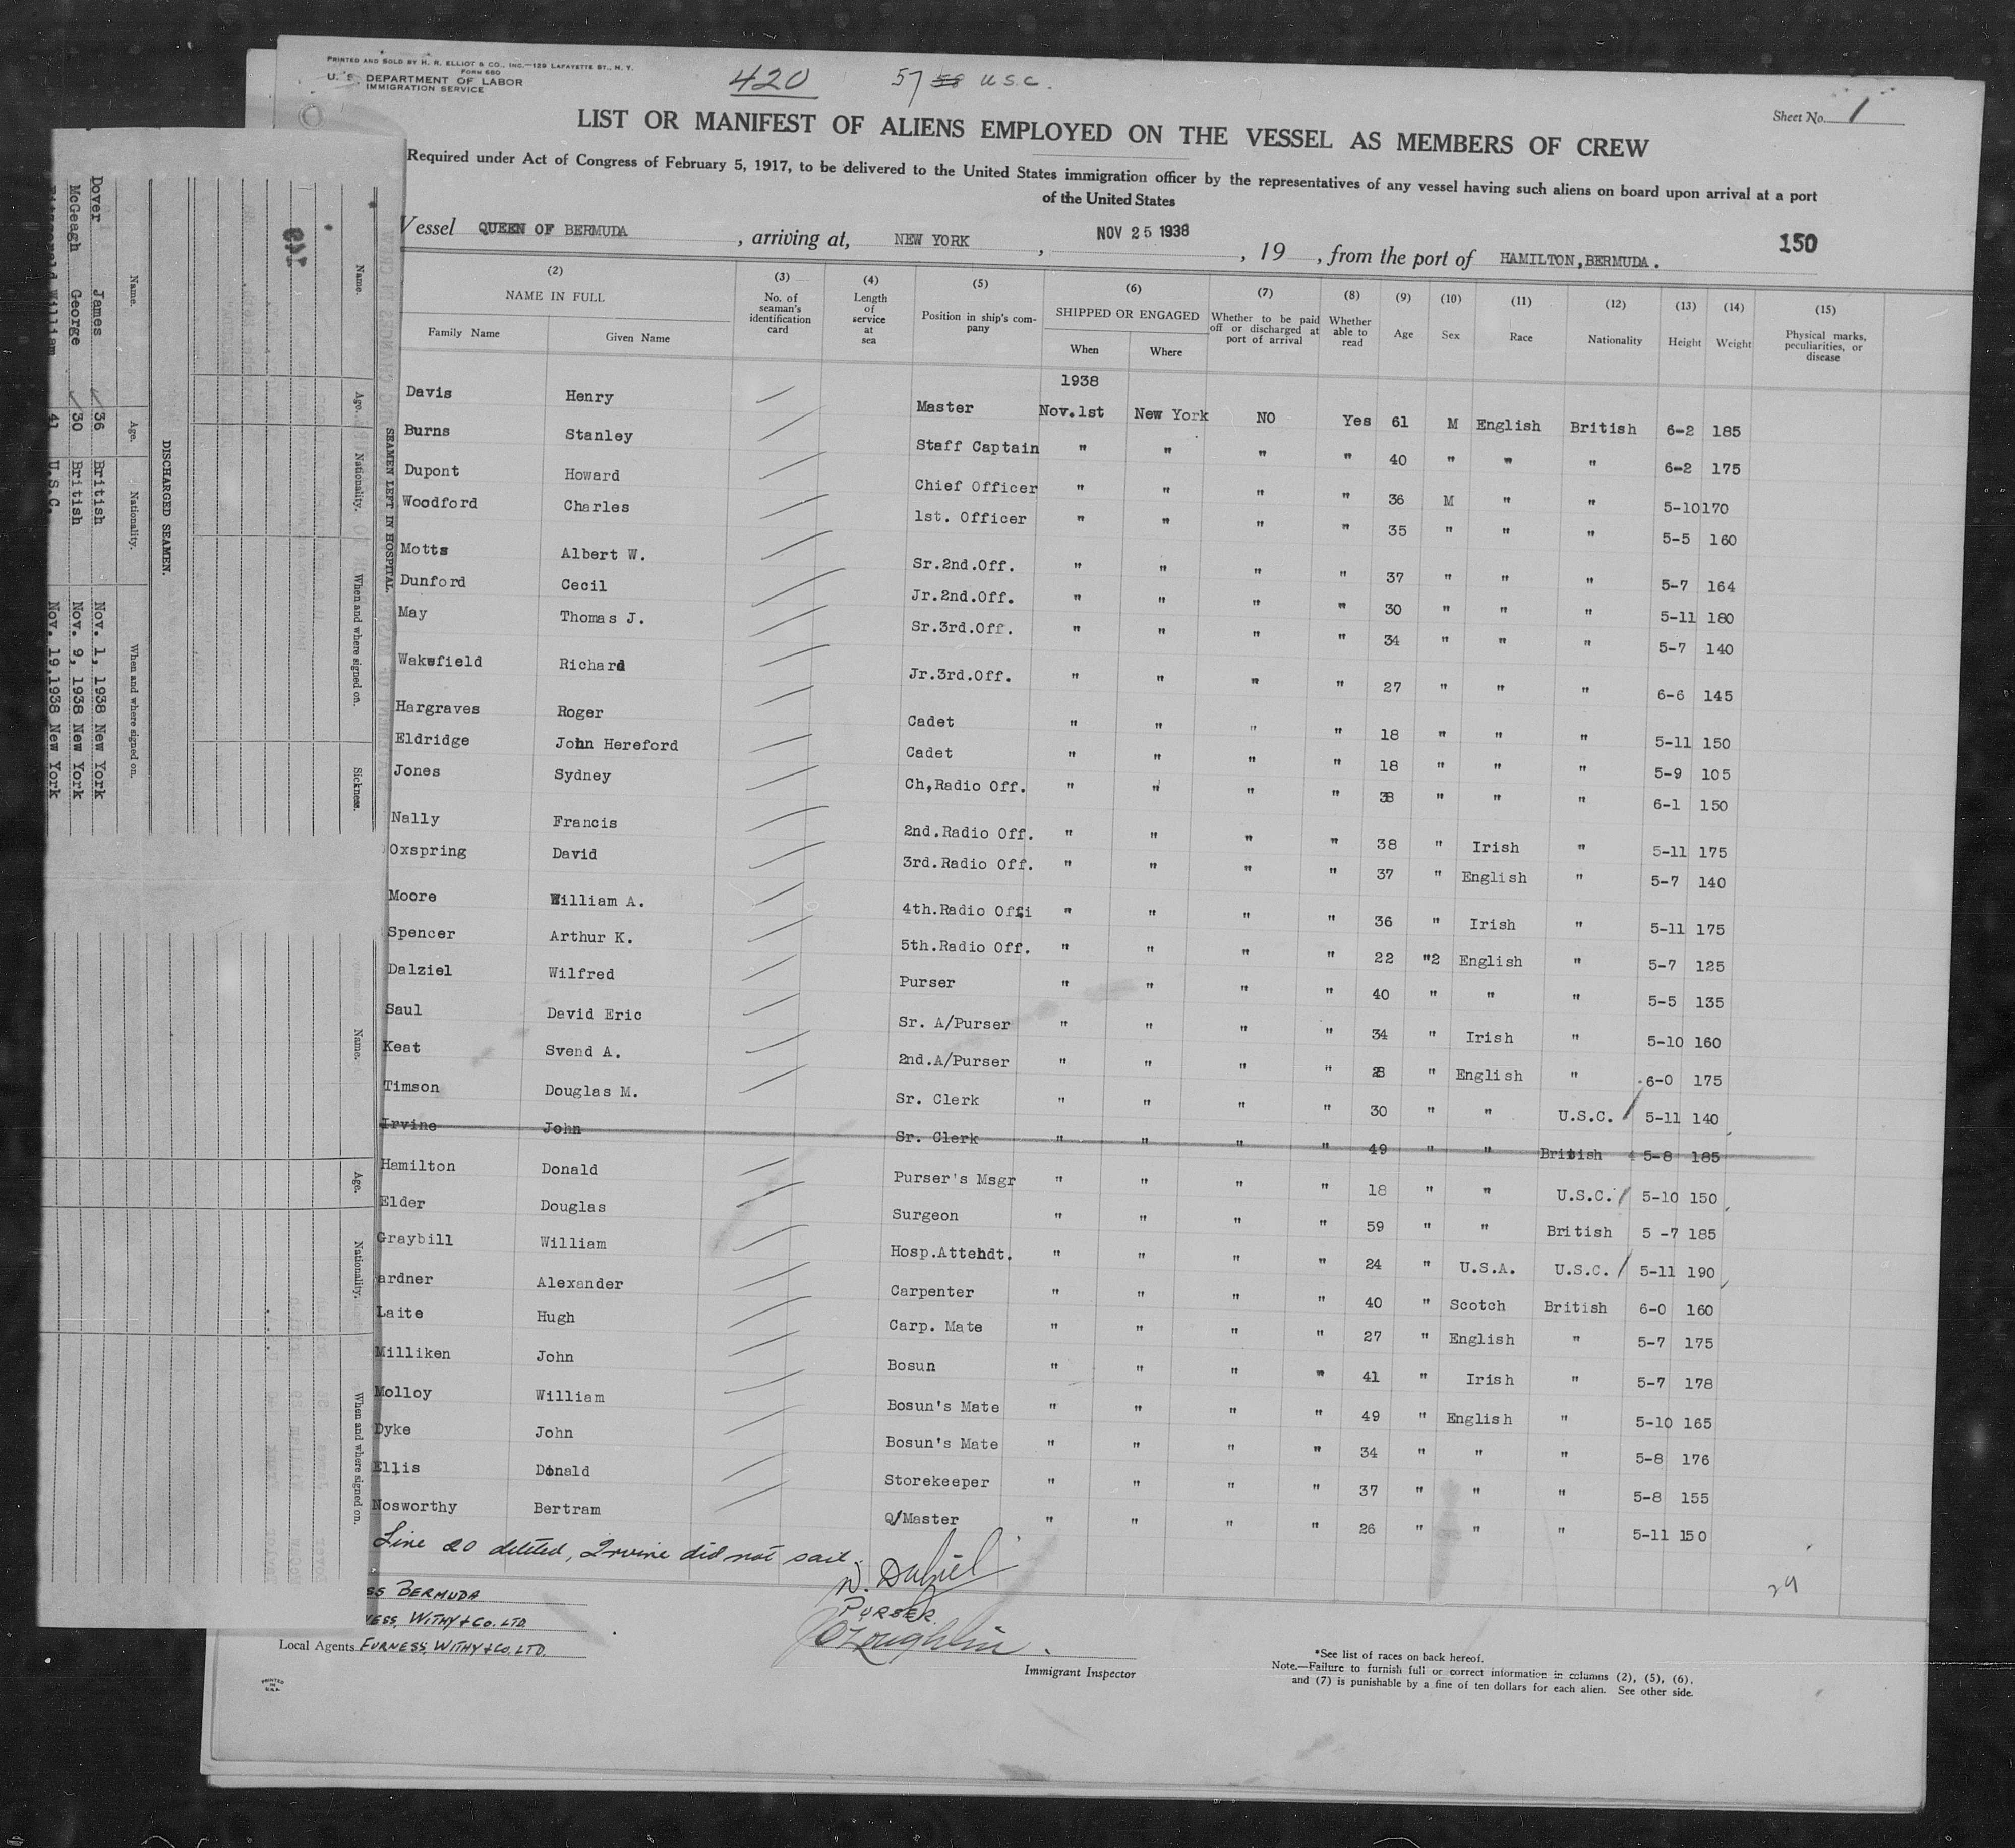 PRINTED AND SOLD BY H. R. ELLIOT & CO., INC.—129 LAFAYETTE ST., N. Y.
FORM 680
U. S. DEPARTMENT OF LABOR
IMMIGRATION SERVICE
420 57 58 U.S.C.
Sheet No. 1
LIST OR MANIFEST OF ALIENS EMPLOYED ON THE VESSEL AS MEMBERS OF CREW
Required under Act of Congress of February 5, 1917, to be delivered to the United States immigration officer by the representatives of any vessel having such aliens on board upon arrival at a port
of the United States
Vessel QUEEN OF BERMUDA, arriving at, NEW YORK, NOV 25 1938, 19 , from the port of HAMILTON,BERMUDA.
150
(2) (3) (4) (5) (6) (7) (8) (9) (10) (11) (12) (13) (14) (15)
NAME IN FULL
Family Name Given Name
No. of seaman's identification card
Length of service at sea
Position in ship's company
SHIPPED OR ENGAGED
When Where
Whether to be paid off or discharged at port of arrival
Whether able to read
Age Sex Race Nationality Height Weight
Physical marks, peculiarities, or disease
1938
Davis Henry Master Nov.1st New York NO Yes 61 M English British 6-2 185
Burns Stanley Staff Captain " " " " 40 " " " 6-2 175
Dupont Howard Chief Officer " " " " 36 M " " 5-10 170
Woodford Charles 1st. Officer " " " " 35 " " " 5-5 160
Motts Albert W. Sr.2nd.Off. " " " " 37 " " " 5-7 164
Dunford Cecil Jr.2nd.Off. " " " " 30 " " " 5-11 180
May Thomas J. Sr.3rd.Off. " " " " 34 " " " 5-7 140
Wakefield Richard Jr.3rd.Off. " " " " 27 " " " 6-6 145
Hargraves Roger Cadet " " " " 18 " " " 5-11 150
Eldridge John Hereford Cadet " " " " 18 " " " 5-9 105
Jones Sydney Ch,Radio Off. " " " " 38 " " " 6-1 150
Nally Francis 2nd.Radio Off. " " " " 38 " Irish " 5-11 175
Oxspring David 3rd.Radio Off. " " " " 37 " English " 5-7 140
Moore William A. 4th.Radio Offi " " " " 36 " Irish " 5-11 175
Spencer Arthur K. 5th.Radio Off. " " " " 22 "2 English " 5-7 125
Dalziel Wilfred Purser " " " " 40 " " " 5-5 135
Saul David Eric Sr. A/Purser " " " " 34 " Irish " 5-10 160
Keat Svend A. 2nd.A/Purser " " " " 28 " English " 6-0 175
Timson Douglas M. Sr. Clerk " " " " 30 " " U.S.C. 5-11 140
Irvine John Sr. Clerk " " " " 49 " " British 5-8 185
Hamilton Donald Purser's Msgr " " " " 18 " " U.S.C. 5-10 150
Elder Douglas Surgeon " " " " 59 " " British 5 -7 185
Graybill William Hosp.Attehdt. " " " " 24 " U.S.A. U.S.C. 5-11 190
ardner Alexander Carpenter " " " " 40 " Scotch British 6-0 160
Laite Hugh Carp. Mate " " " " 27 " English " 5-7 175
Milliken John Bosun " " " " 41 " Irish " 5-7 178
Molloy William Bosun's Mate " " " " 49 " English " 5-10 165
Dyke John Bosun's Mate " " " " 34 " " " 5-8 176
Ellis Donald Storekeeper " " " " 37 " " " 5-8 155
Nosworthy Bertram Q/Master " " " " 26 " " " 5-11 150
Line 20 deleted, Irvine did not sail.
W. Dalziel
PURSER.
29
SS BERMUDA
NESS, WITHY & CO. LTD.
Local Agents FURNESS, WITHY & CO. LTD.
O'Loughlin
Immigrant Inspector
*See list of races on back hereof.
Note.—Failure to furnish full or correct information in columns (2), (5), (6),
and (7) is punishable by a fine of ten dollars for each alien. See other side.
PRINTED IN U.S.A.
SEAMEN LEFT IN HOSPITAL
Name. Age. Nationality. When and where signed on. Sickness.
149
DISCHARGED SEAMEN.
Name. Age. Nationality. When and where signed on.
Dover James 36 British Nov. 1, 1938 New York
McGeagh George 30 British Nov. 9, 1938 New York
Fitzgerald William 41 U.S.C. Nov. 19,1938 New York
Name. Age. Nationality. When and where signed on.